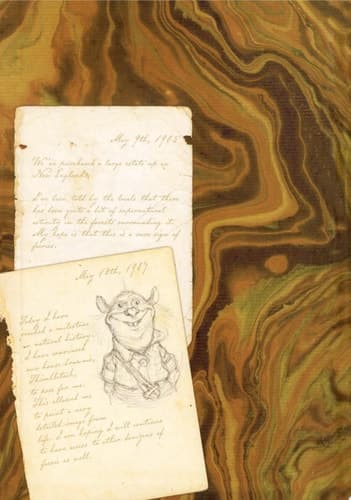 May 9th, 1985
We've purchased a large estate up in
New England.
I've been told by the locals that there
has been quite a bit of supernatural
activity in the forests surrounding it.
My hope is that this is a sure sign of
faeries.
May 18th, 1987
Today I have
reached a milestone
in natural history.
I have convinced
our house brownie,
Thimbletack,
to pose for me.
This allowed me
to paint a very
detailed image from
life. I am hoping I will continue
to have access to other denizens of
faerie as well.